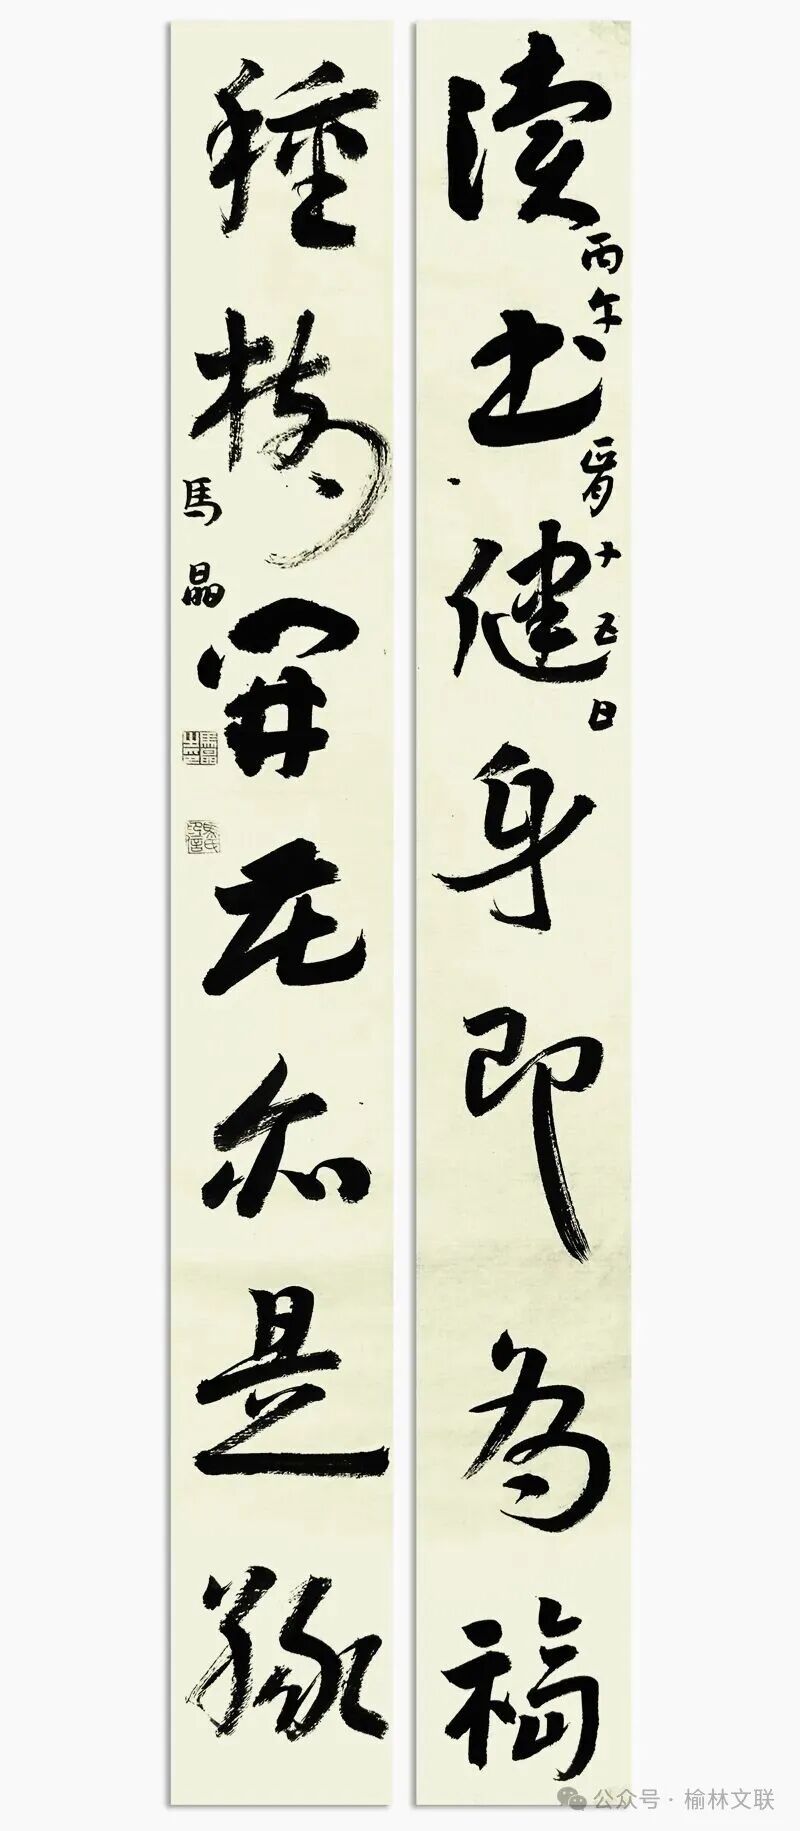 读书健身即为福
丙午正月十五日
種樹開花亦是缘
馬晶
公众号·榆林文联